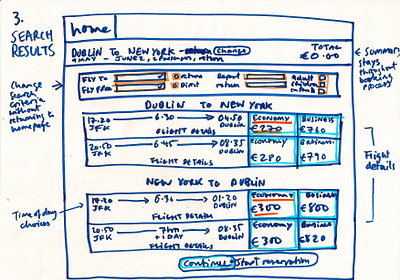 3.
SEARCH
RESULTS
home
DUBLIN TO NEW YORK - change
9 MAY - JUNE 2, 2 PERSONS, return
TOTAL
€0.00
← Summary
stays
throughout
booking
process
Change
search
criteria
without
returning to
homepage
FLY TO
return
Depart
Adult
FLY FROM
Direct
return
children
infants
DUBLIN TO NEW YORK
17.20 → 6.30 → 04:50
JFK
DUBLIN
FLIGHT DETAILS
Economy
€270
Business
€760
20.50 → 6.45 → 08:35
JFK
DUBLIN
FLIGHT DETAILS
Economy
€280
Business
€790
Flight
details
NEW YORK TO DUBLIN
Time of day
choices
17.20 → 6.30 → 01:20
JFK
DUBLIN
FLIGHT DETAILS
Economy
€300
Business
€800
20.50 → 7hrs → 08:35
JFK
+1 DAY
DUBLIN
FLIGHT DETAILS
Economy
€300
Business
€820
Continue Start reservation